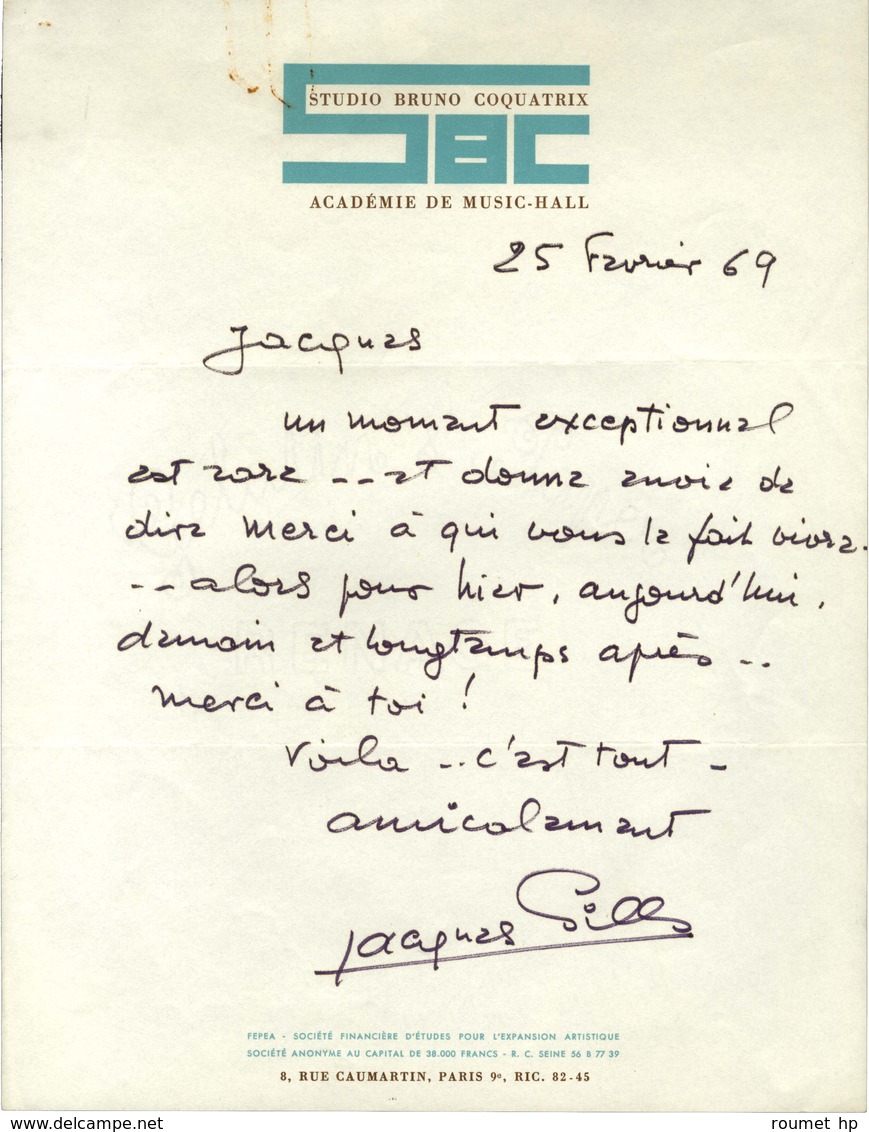 STUDIO BRUNO COQUATRIX
SBC
ACADÉMIE DE MUSIC-HALL
25 Fevrier 69
Jacques
un moment exceptionnel
est rare -- et donne envie de
dire merci à qui vous le fait vivre.
-- alors pour hier, aujourd'hui,
demain et longtemps après ..
merci à toi !
Voila -- c'est tout -
amicalement
Jacques
FEPEA - SOCIÉTÉ FINANCIÈRE D'ÉTUDES POUR L'EXPANSION ARTISTIQUE
SOCIÉTÉ ANONYME AU CAPITAL DE 38.000 FRANCS - R. C. SEINE 56 B 77 39
8, RUE CAUMARTIN, PARIS 9e, RIC. 82-45
delcampe.net
roumet hp